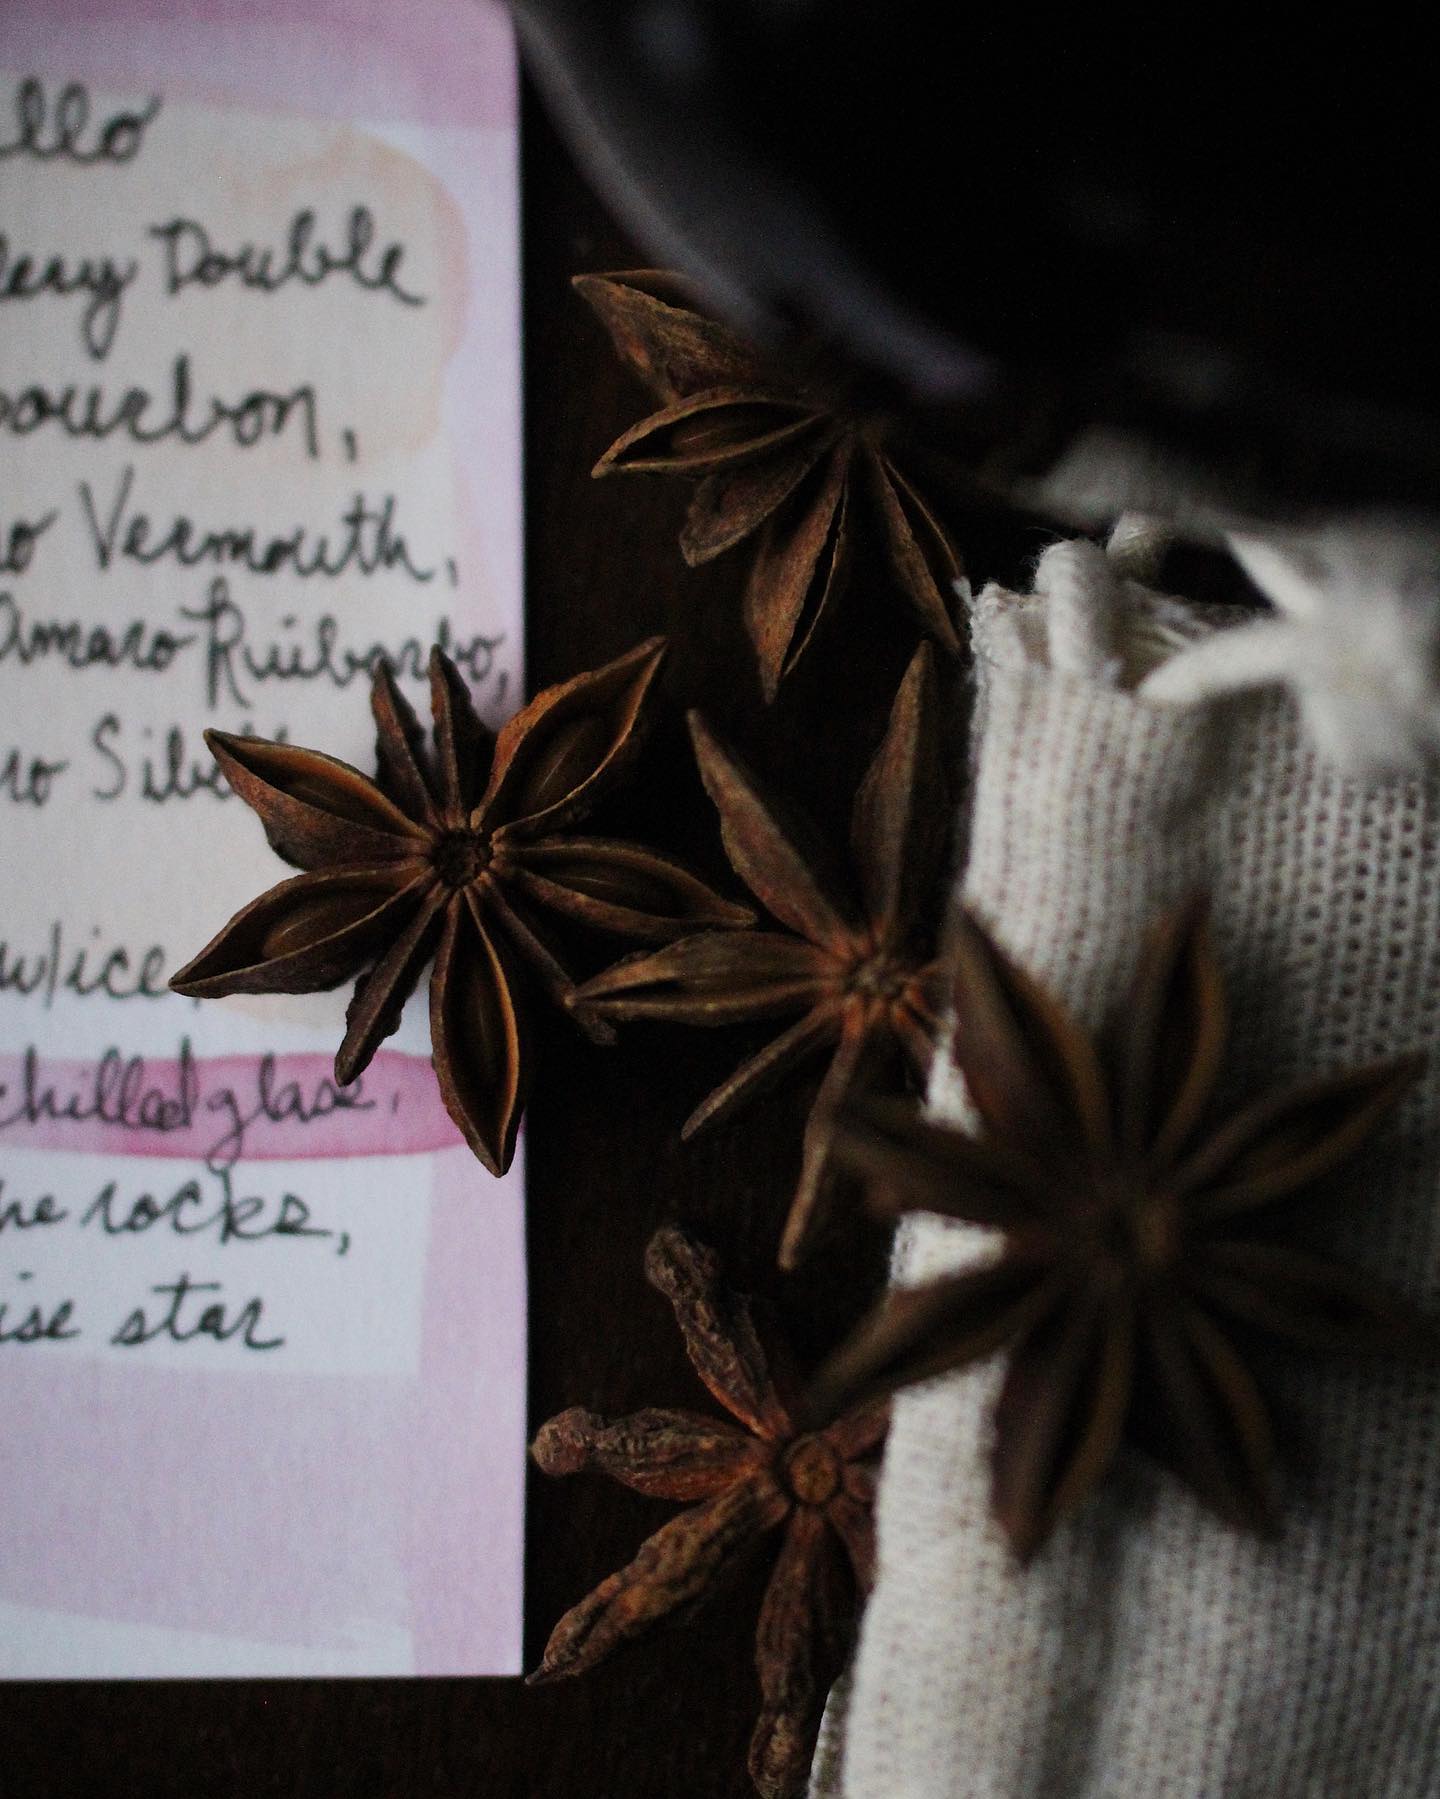 llo
lery Double
bourbon,
no Vermouth,
Amaro Ruibarbo,
ro Sibe
w/ice
chilled glass,
he rocks,
ise star